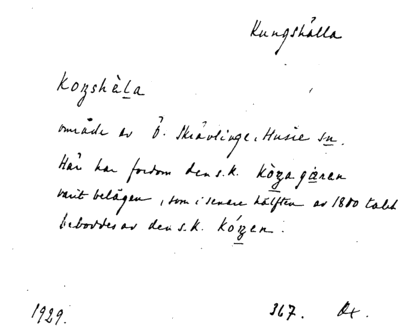 Kungshälla
Koŋshȧla
område av Ö. Skrävlinge, Husie sn.
Här har fordom den s.k. Kòŋagȧren
varit belägen, som i senare hälften av 1800 talet
beboddes av den s.k. Kóŋen.
1929. 367. Ox.